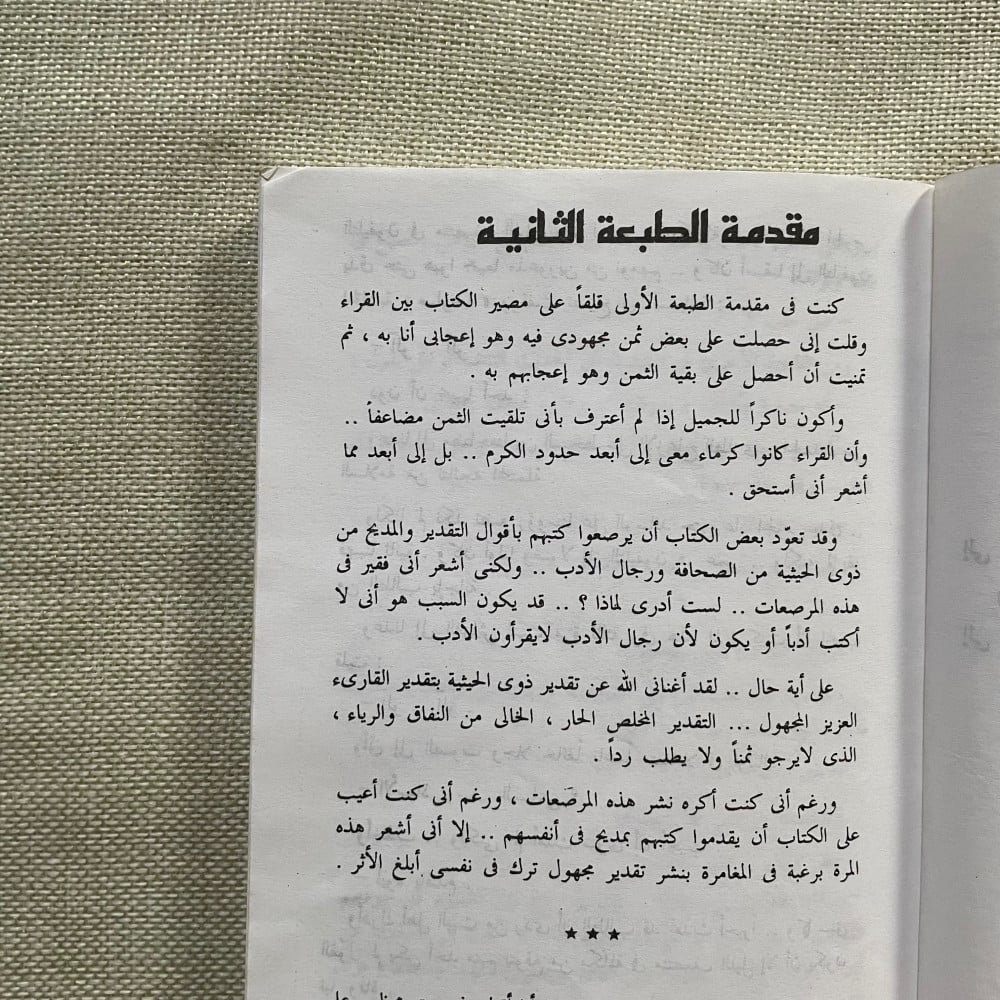 مقدمة الطبعة الثانية
كنت فى مقدمة الطبعة الأولى قلقاً على مصير الكتاب بين القراء
وقلت إنى حصلت على بعض ثمن مجهودى فيه وهو إعجابى أنا به ، ثم
تمنيت أن أحصل على بقية الثمن وهو إعجابهم به .
وأكون ناكراً للجميل إذا لم أعترف بأنى تلقيت الثمن مضاعفاً ..
وأن القراء كانوا كرماء معى إلى أبعد حدود الكرم .. بل إلى أبعد مما
أشعر أنى أستحق .
وقد تعوّد بعض الكتاب أن يرصعوا كتبهم بأقوال التقدير والمديح من
ذوى الحيثية من الصحافة ورجال الأدب .. ولكنى أشعر أنى فقير فى
هذه المرصعات .. لست أدرى لماذا ؟ .. قد يكون السبب هو أنى لا
أكتب أدباً أو يكون لأن رجال الأدب لايقرأون الأدب .
على أية حال .. لقد أغنانى الله عن تقدير ذوى الحيثية بتقدير القارىء
العزيز المجهول ... التقدير المخلص الحار ، الخالى من النفاق والرياء ،
الذى لايرجو ثمناً ولا يطلب رداً .
ورغم أنى كنت أكره نشر هذه المرصّعات ، ورغم أنى كنت أعيب
على الكتاب أن يقدموا كتبهم بمديح فى أنفسهم .. إلا أنى أشعر هذه
المرة برغبة فى المغامرة بنشر تقدير مجهول ترك فى نفسى أبلغ الأثر .
★★★